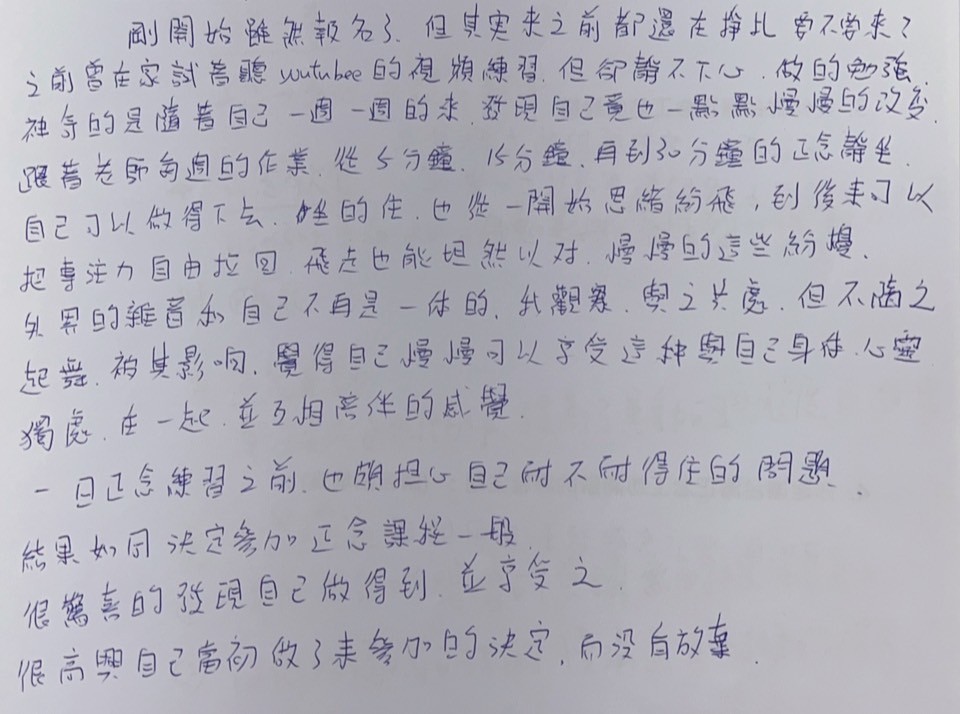 剛開始雖然報名了、但其實來之前都還在掙扎要不要來?
之前曾在家試著聽 youtubee 的視頻練習、但卻靜不下心、做的勉強、
神奇的是隨著自己一週一週的來、發現自己竟也一點點慢慢的改變、
跟著老師每週的作業、從5分鐘、15分鐘、再到30分鐘的正念靜坐、
自己可以做得下去、坐的住、也從一開始思緒紛飛,到後來可以
把專注力自由拉回、飛走也能坦然以对、慢慢的這些紛擾、
外界的雜音和自己不再是一体的、我觀察、與之共處、但不隨之
起舞、被其影响、覺得自己慢慢可以享受這种與自己身体、心靈
獨處、在一起、並互相陪伴的感覺、
一日正念練習之前、也頗担心自己耐不耐得住的問題、
結果如同決定參加正念課程一般
很驚喜的發現自己做得到、並享受之、
很高興自己當初做了來參加的決定、而沒有放棄、